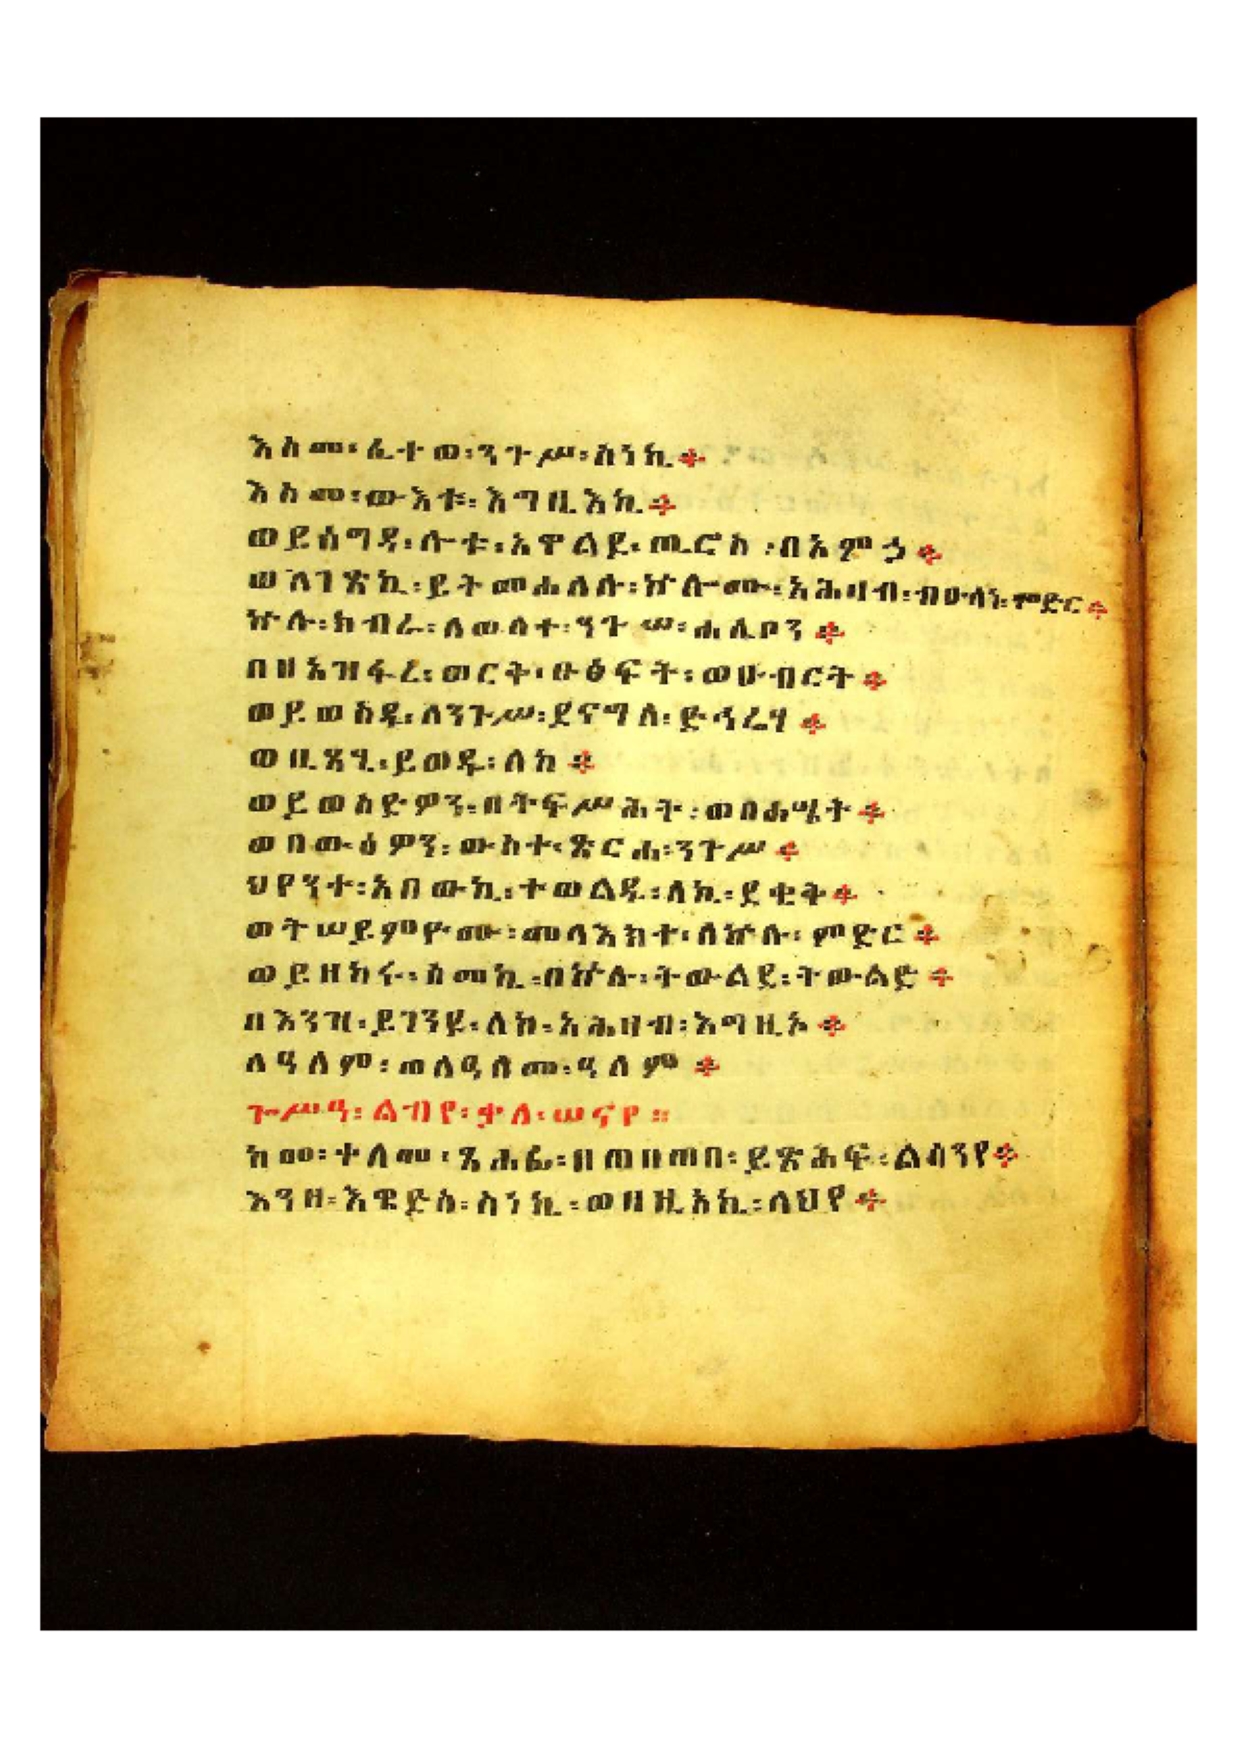 እስመ፡ፈተወ፡ንጉሥ፡ስነኪ፨
እስመ፡ውእቱ፡እግዚእኪ፨
ወይሰግዳ፡ሎቱ፡አዋልደ፡ጢሮስ፡በአምኃ፨
ወለገጽኪ፡ይትመሐለሉ፡ኵሎሙ፡አሕዛብ፡ብዑላነ፡ምድር፨
ኵሉ፡ክብራ፡ለወለተ፡ንጉሠ፡ሐሴቦን፨
በዘአዝፋረ፡ወርቅ፡ዑፅፍት፡ወሁብርት፨
ወይወስዱ፡ለንጉሥ፡ደናግለ፡ድኅሬሃ፨
ወቢጻሂ፡ይወዱ፡ለከ፨
ወይወስድዎን፡በትፍሥሕት፡ወበሐሤት፨
ወበውፅዎን፡ውስተ፡ጽርሐ፡ንጉሥ፨
ህየንተ፡አበውኪ፡ተወልዱ፡ለኪ፡ደቂቅ፨
ወትሠይምዮሙ፡መላእክተ፡ለኵሉ፡ምድር፨
ወይዘክሩ፡ስመኪ፡በኵሉ፡ትውልደ፡ትውልድ፨
በእንዝ፡ይገንዩ፡ለከ፡አሕዛብ፡እግዚኦ፨
ለዓለም፡ወለዓለመ፡ዓለም፨
ጐሥዓ፡ልብየ፡ቃለ፡ሠናየ።
ከመ፡ተለመ፡ጸሐፊ፡ዘጠበጠበ፡ይጽሕፍ፡ልሳንየ፨
እንዘ፡እዌድስ፡ስነኪ፡ወዘዚአኪ፡ላህየ፨